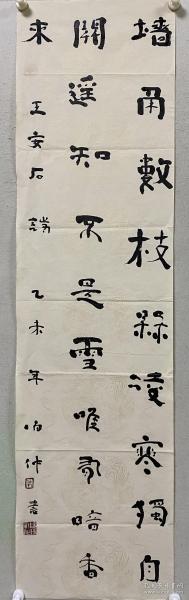 墙角數枝槑凌寒獨自
開遥知不是雪唯有暗香
来
王安石詩 乙未年伯仲書